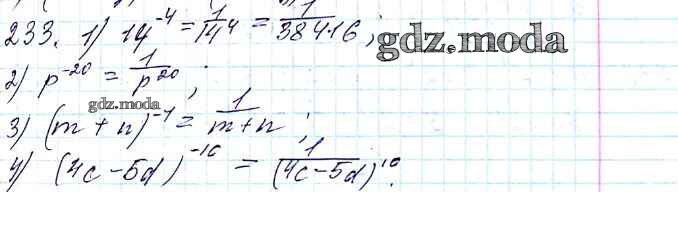 233. 1) 14^-4 = 1/14^4 = 1/38416;
gdz.moda
2) p^-20 = 1/p^20;
gdz.moda
3) (m+n)^-1 = 1/m+n;
4) (4c-5d)^-10 = 1/(4c-5d)^10.